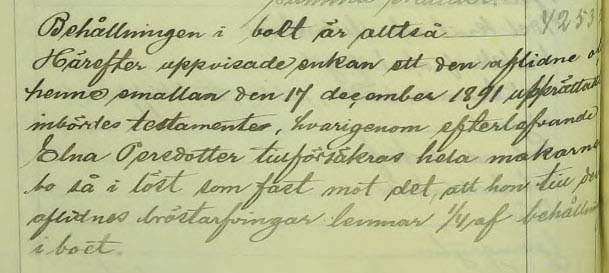 Behållningen i boet är alltså 4253
Härefter uppvisade enkan ett den aflidne o
henne emellan den 17 december 1891 upprättad
inbördes testamente, hvarigenom efterlefvande
Elna Persdotter tillförsäkras hela makarne
bo så i löst som fast mot det, att hon till de
aflidnes bröstarfvingar lemnar 1/4 af behålln
i boet.